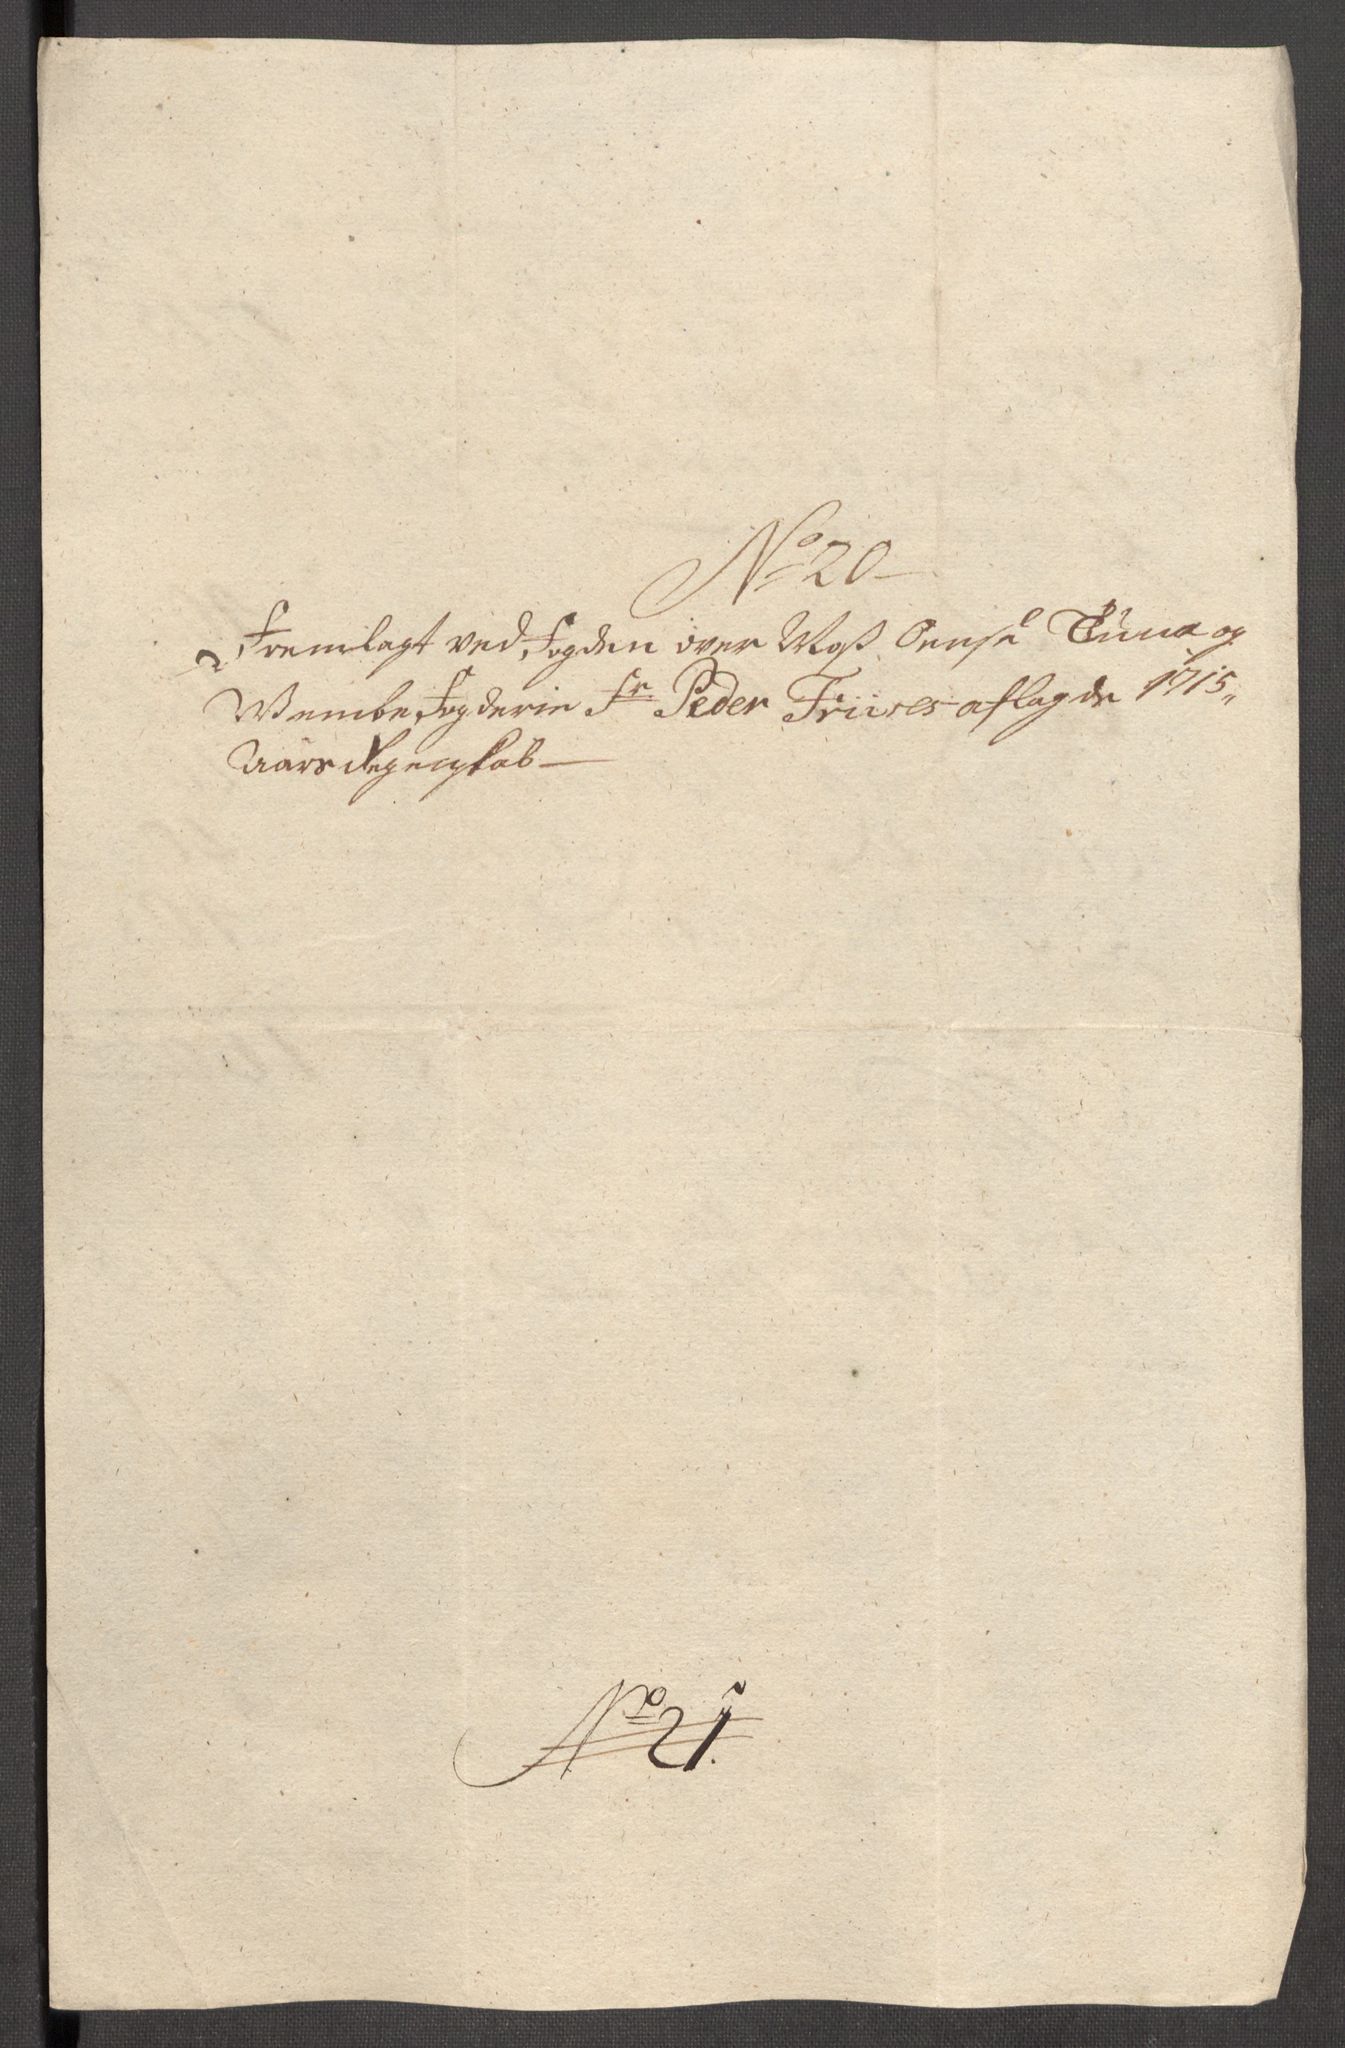 No 20
Fremlagt ved fogden over
Wembe fogderie Sr Peder Friises aflagde 1715
Aars Regenskab
No 21.